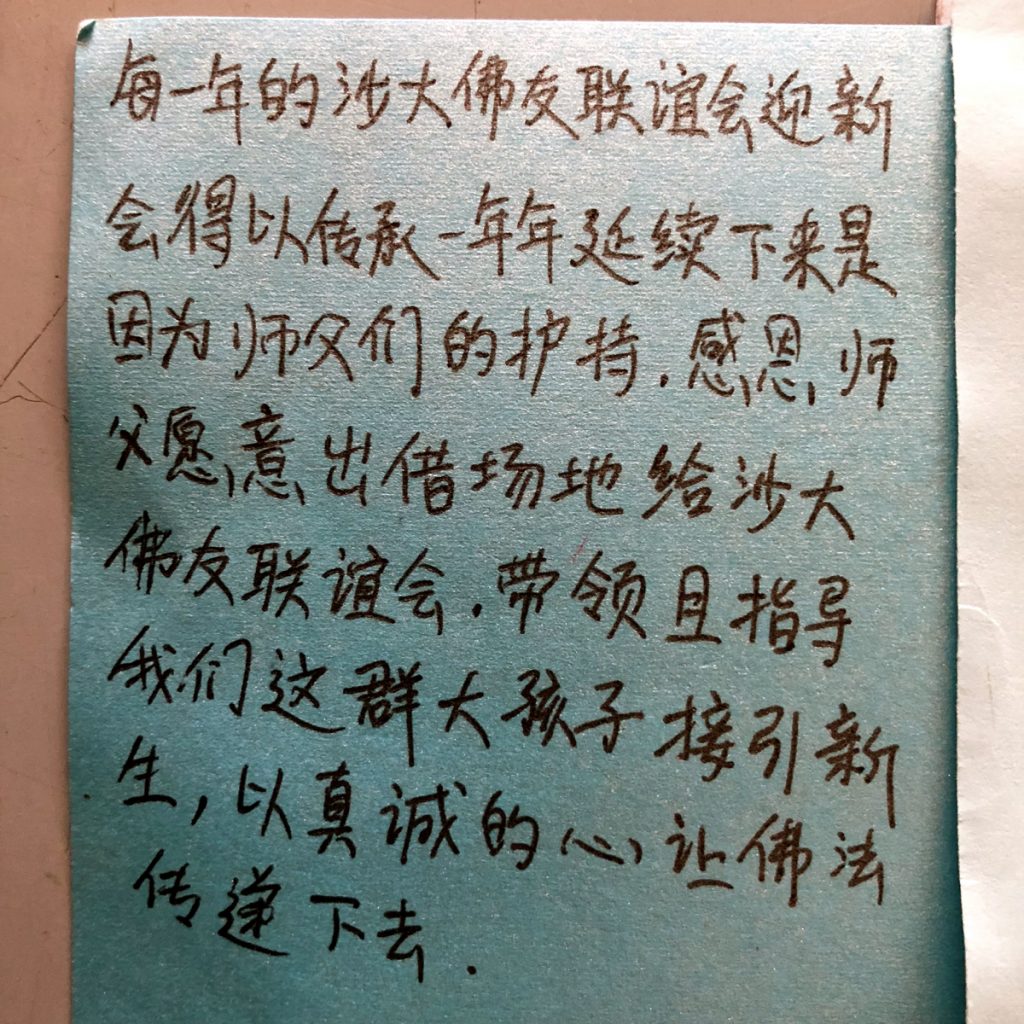 每一年的沙大佛友联谊会迎新
会得以传承一年年延续下来是
因为师父们的护持.感恩师
父愿意出借场地给沙大
佛友联谊会.带领且指导
我们这群大孩子接引新
生,以真诚的心让佛法
传递下去.